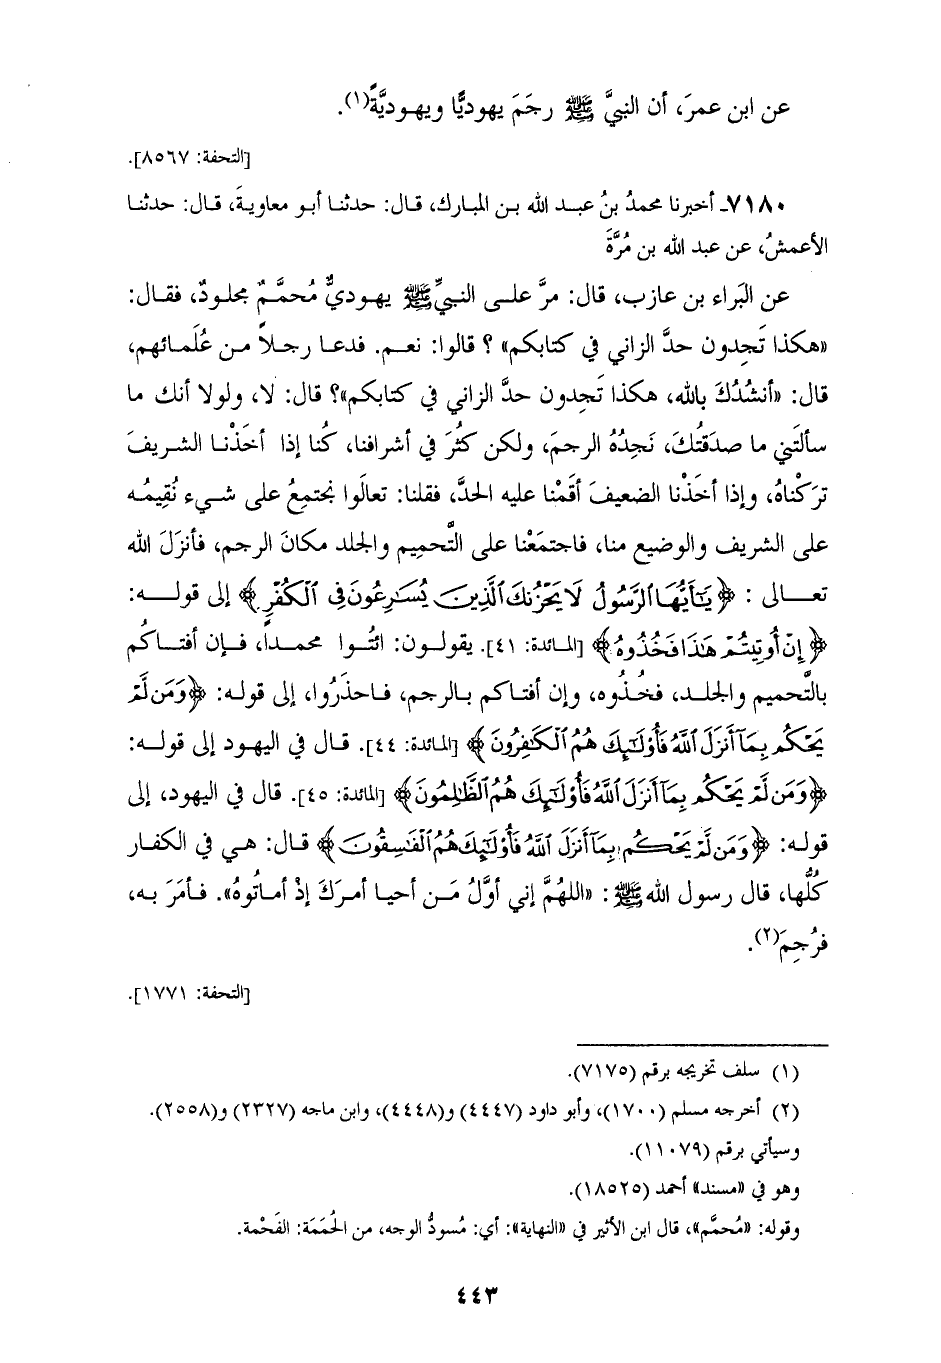 عن ابن عمرَ، أن النبيَّ ﷺ رجَمَ يهوديًّا ويهوديَّةً(١).
[التحفة: ٨٥٦٧].
٧١٨٠ـ أخبرنا محمدُ بنُ عبد الله بن المبارك، قال: حدثنا أبو معاويةَ، قال: حدثنا
الأعمشُ، عن عبد الله بن مُرَّةَ
عن البَراء بن عازب، قال: مرَّ على النبيِّ ﷺ يهوديٌّ مُحمَّمٌ مجلودٌ، فقال:
«هكذا تَجدون حدَّ الزاني في كتابكم» ؟ قالوا: نعم. فدعا رجلاً من عُلَمائهم،
قال: «أنشُدُكَ بالله، هكذا تَجدون حدَّ الزاني في كتابكم»؟ قال: لا، ولولا أنك ما
سألتَني ما صدَقتُكَ، نَجِدُهُ الرجمَ، ولكن كثُرَ في أشرافنا، كُنا إذا أخَذْنا الشريفَ
تركْناهُ، وإذا أخَذْنا الضعيفَ أقَمْنا عليه الحدَّ، فقلنا: تعالَوا نجتمِعُ على شيء نُقِيمُه
على الشريف والوضيع منا، فاجتمَعْنا على التَّحمِيم والجلد مكانَ الرجم، فأنزَلَ الله
تعالى : ﴿يَٰٓأَيُّهَا ٱلرَّسُولُ لَا يَحْزُنكَ ٱلَّذِينَ يُسَٰرِعُونَ فِى ٱلْكُفْرِ﴾ إلى قوله:
﴿إِنْ أُوتِيتُمْ هَٰذَا فَخُذُوهُ﴾ [المائدة: ٤١]. يقولون: ائتُوا محمداً، فإن أفتاكُم
بالتَّحميم والجلد، فخُذُوه، وإن أفتاكم بالرجم، فاحذَرُوا، إلى قوله: ﴿وَمَن لَّمْ
يَحْكُم بِمَآ أَنزَلَ ٱللَّهُ فَأُو۟لَٰٓئِكَ هُمُ ٱلْكَٰفِرُونَ﴾ [المائدة: ٤٤]. قال في اليهود إلى قوله:
﴿وَمَن لَّمْ يَحْكُم بِمَآ أَنزَلَ ٱللَّهُ فَأُو۟لَٰٓئِكَ هُمُ ٱلظَّٰلِمُونَ﴾ [المائدة: ٤٥]. قال في اليهود، إلى
قوله: ﴿وَمَن لَّمْ يَحْكُم بِمَآ أَنزَلَ ٱللَّهُ فَأُو۟لَٰٓئِكَ هُمُ ٱلْفَٰسِقُونَ﴾ قال: هي في الكفار
كُلُّها، قال رسول الله ﷺ : «اللهُمَّ إني أوَّلُ مَن أحيا أمرَكَ إذْ أماتُوهُ». فأمَرَ به،
فرُجِمَ(٢).
[التحفة: ١٧٧١].
(١) سلف تخريجه برقم (٧١٧٥).
(٢) أخرجه مسلم (١٧٠٠)، وأبو داود (٤٤٤٧) و(٤٤٤٨)، وابن ماجه (٢٣٢٧) و(٢٥٥٨).
وسيأتي برقم (١١٠٧٩).
وهو في «مسند» أحمد (١٨٥٢٥).
وقوله: «مُحمَّم»، قال ابن الأثير في «النهاية»: أي: مُسودُّ الوجه، من الحُمَمَة: الفَحْمة.
٤٤٣